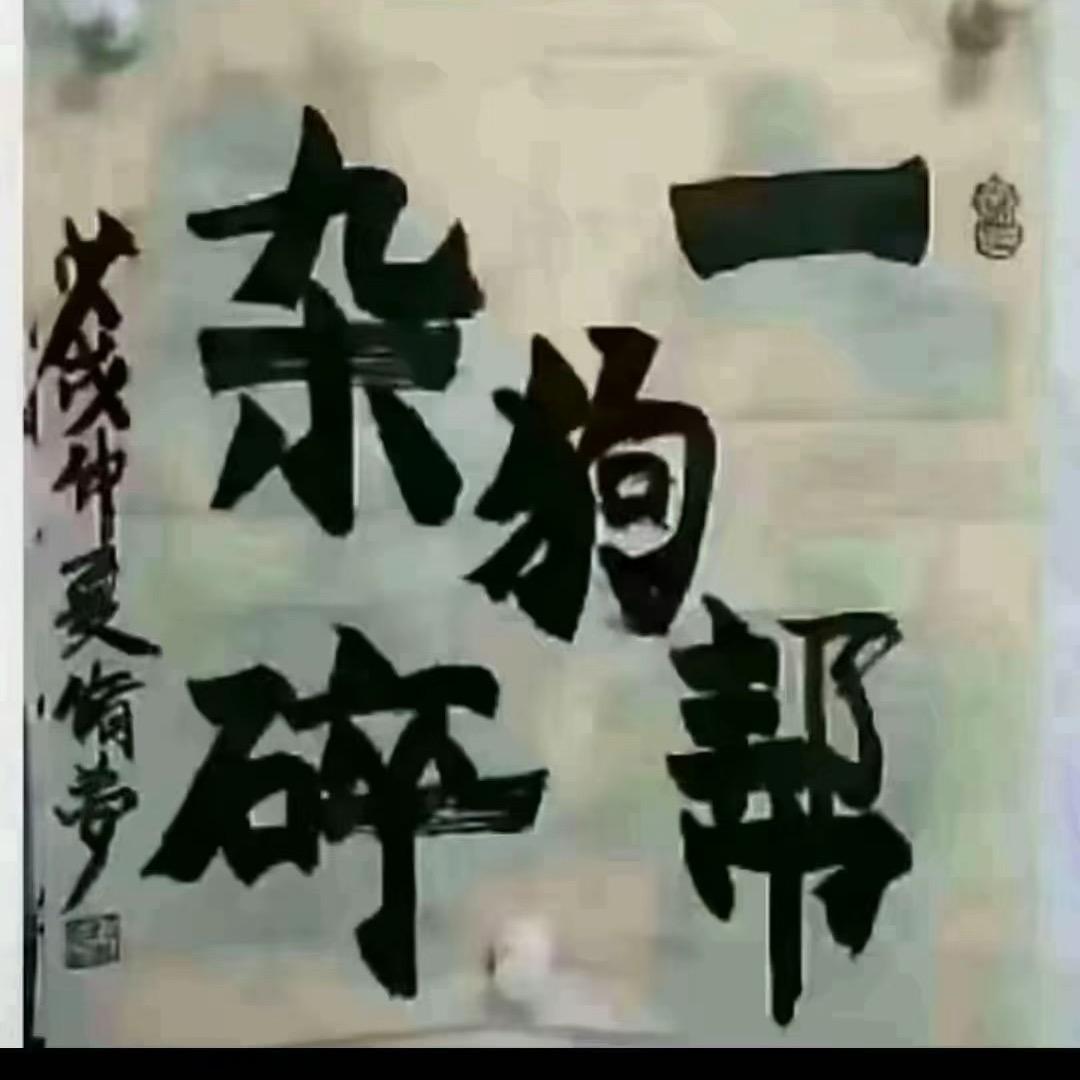 一帮
狗
杂碎
戊戌仲夏脩梦